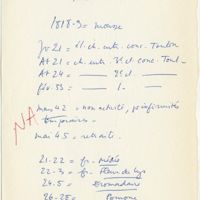 1818-9 = mousse
Jv 21 = él. ch. entr. conc. Toulon
At 21 = ch. entr. 3e cl. conc. Toul–
At 24 = —— 2e cl. —
fév. 33 = —— 1 —
NA
mars 42 = non activité, pr infirmités temporaires
mai 45 = retraite.
21-22 = fr. Médée
22-3 = fr. Fleur de Lys
24.5 = Dromadaire
26-28 = Pomone